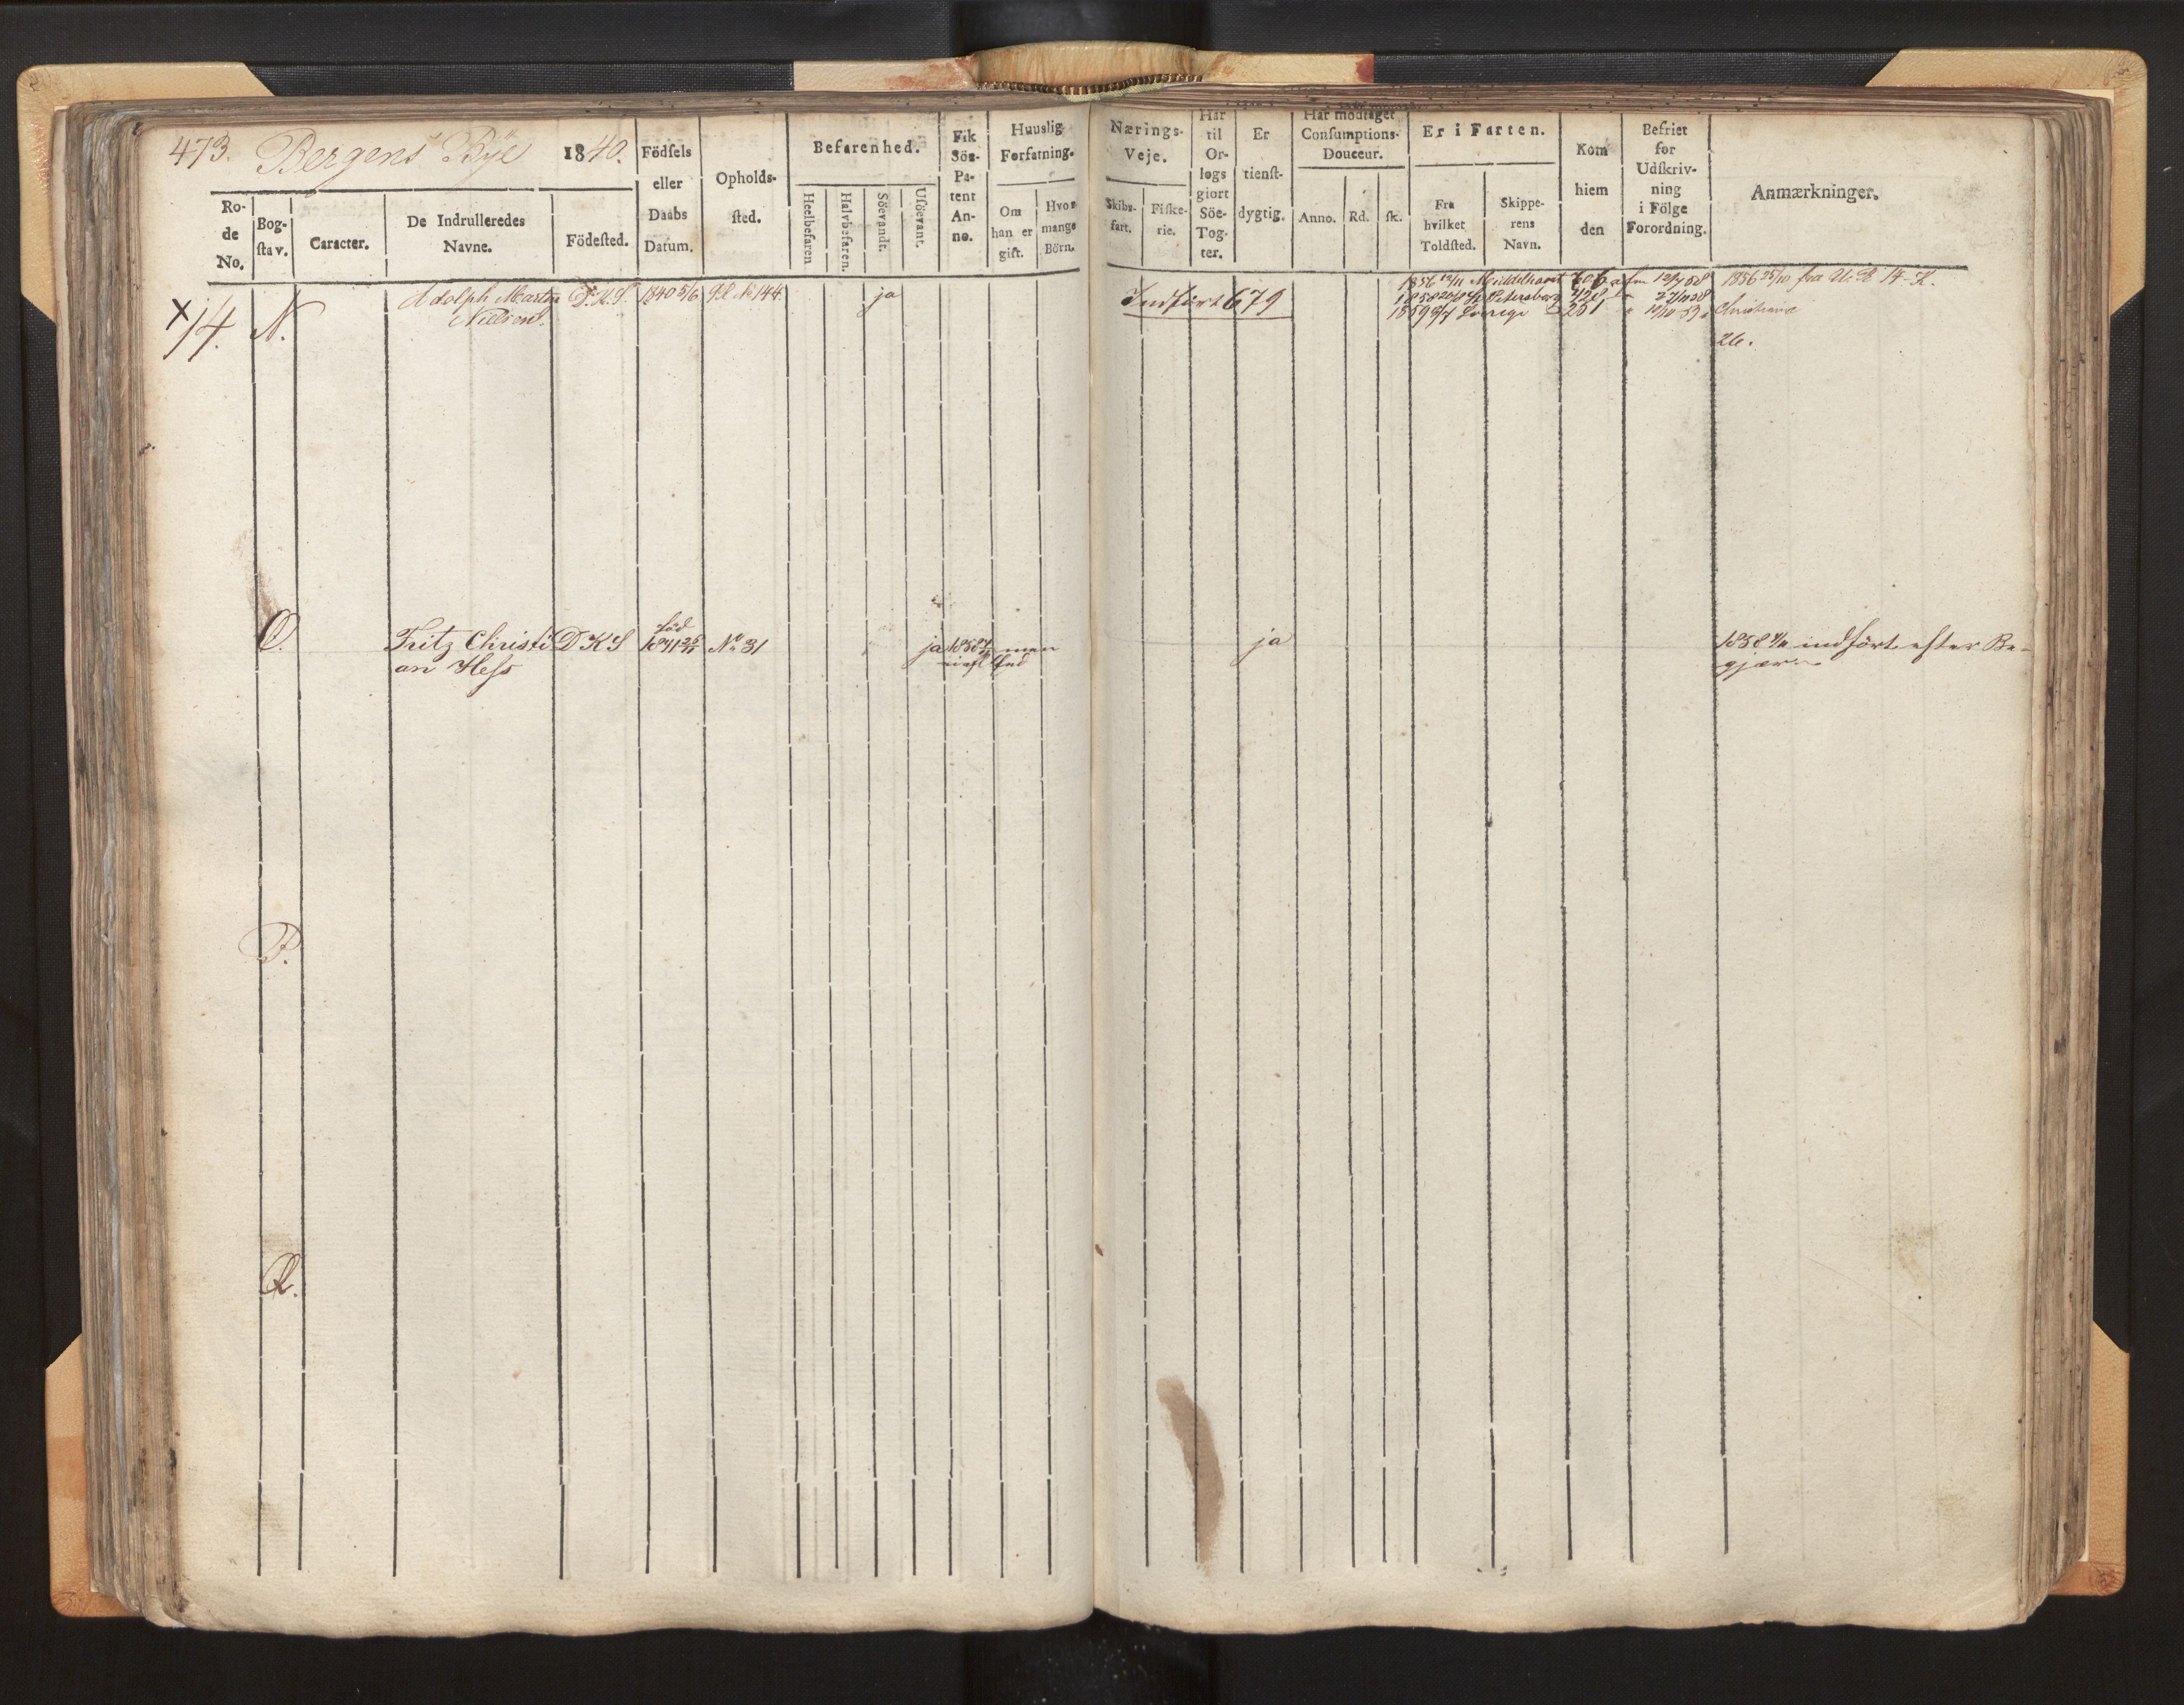 473. Bergens Bye 1840.
Ro-
de
No.
Bog-
stav.
Caracter.
De Indrulleredes
Navne.
Födested.
Födsels
eller
Daabs
Datum.
Opholds-
sted.
Befarenhed.
Heelbefaren
Halvbefaren.
Söevandt.
Usöevant.
Fik
Söe-
Pa-
tent
An-
no.
Huuslig
Forfatning.
Om
han er
gift.
Hvor
mange
Börn.
Nærings-
Veje.
Skibs-
fart.
Fiske-
rie.
Har
til
Or-
logs
giort
Söe-
Tog-
ter.
Er
tienst-
dygtig.
Har modtaget
Consumptions-
Douceur.
Anno.
Rd.
sk.
Er i Farten.
Fra
hvilket
Toldsted.
Skippe-
rens
Navn.
Kom
hiem
den
Befriet
for
Udskriv-
ning
i Fölge
Forordning.
Anmærkninger.
x 14. N. Adolph Martin D.K.S. 1840 5/6 ja
Nielsen.
Indført 679
1856 12/11 Middelhavet 606 12/7 58 1856 25/10 fra U. R 14-K.
1858 St Petersborg 428
1859 Sverige 251 Christiania
26.
O. Fritz Christi D K S fød 1841 No 31 ja 1858 men ja 1858 indført efter Be-
an Hess gjær.
P.
Q.